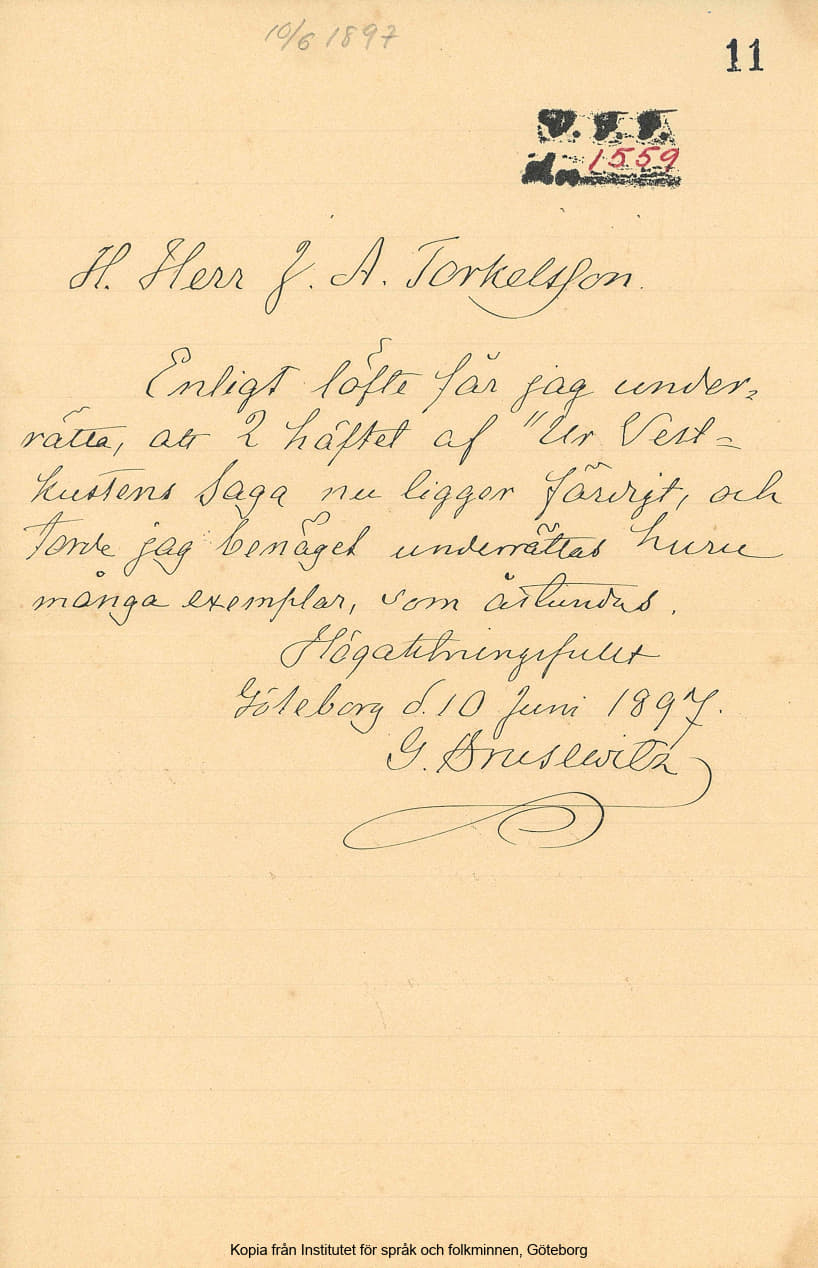 10/6 1897
11
V. F. F.
1559
H. Herr J. A. Torkelsson.
Enligt löfte får jag under-
rätta, att 2 häftet af "Ur Vest-
kustens Saga nu ligger färdigt, och
torde jag benäget underrättas huru
många exemplar, som åstundas.
Högaktningsfullt
Göteborg d. 10 Juni 1897.
G. Bruslewitz
Kopia från Institutet för språk och folkminnen, Göteborg